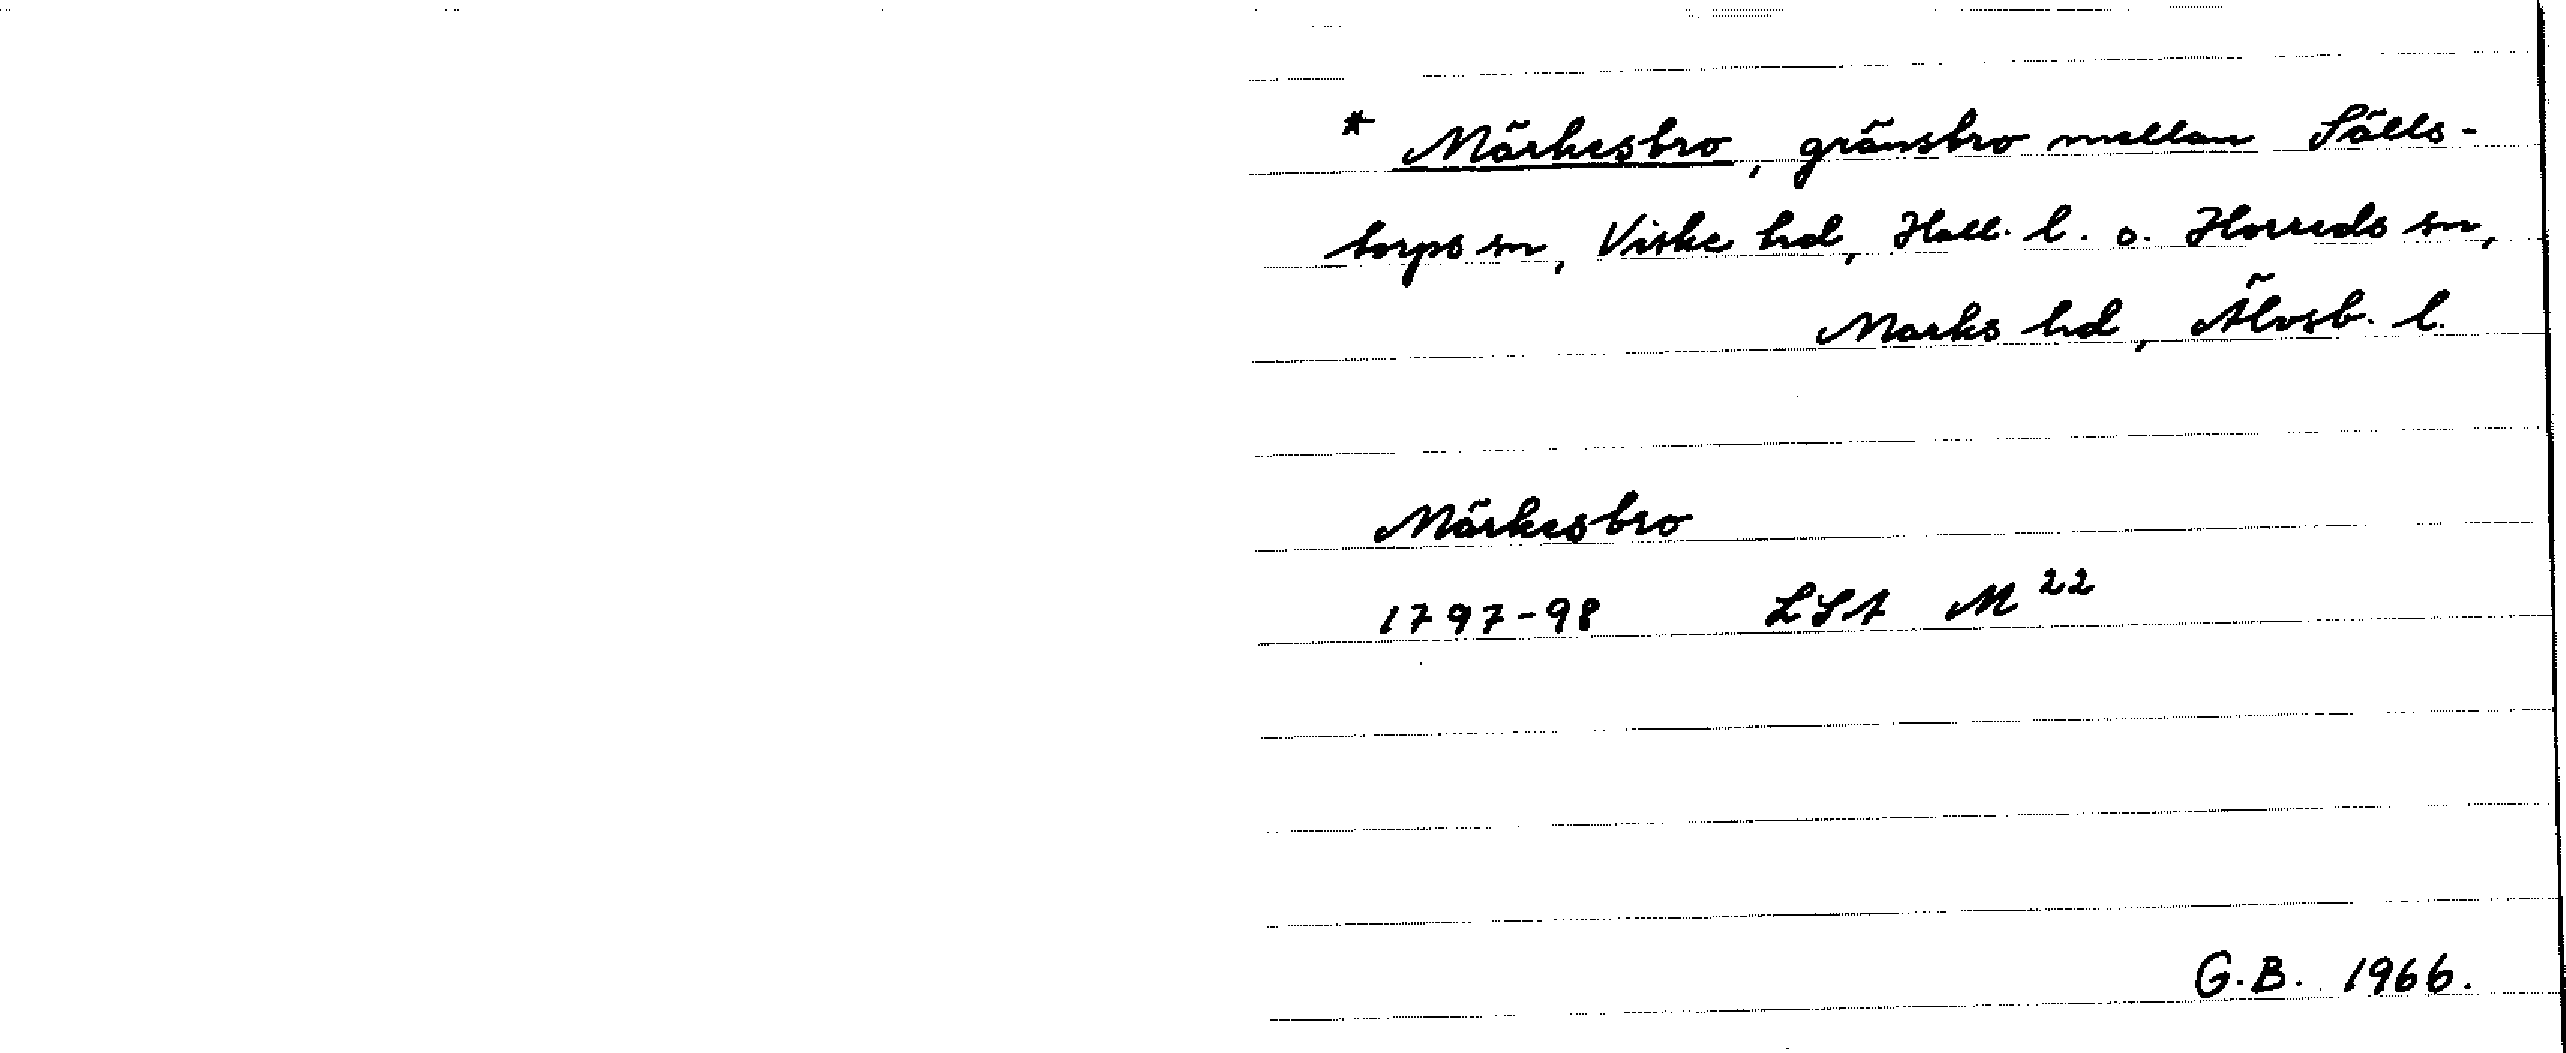 * Märkesbro, gränsbro mellan Sälls-
torps sn, Viske hd, Hall. l. o. Horreds sn,
Marks hd, Älvsb. l.
Märkesbro
1797-98 LSA M 22
G.B. 1966.